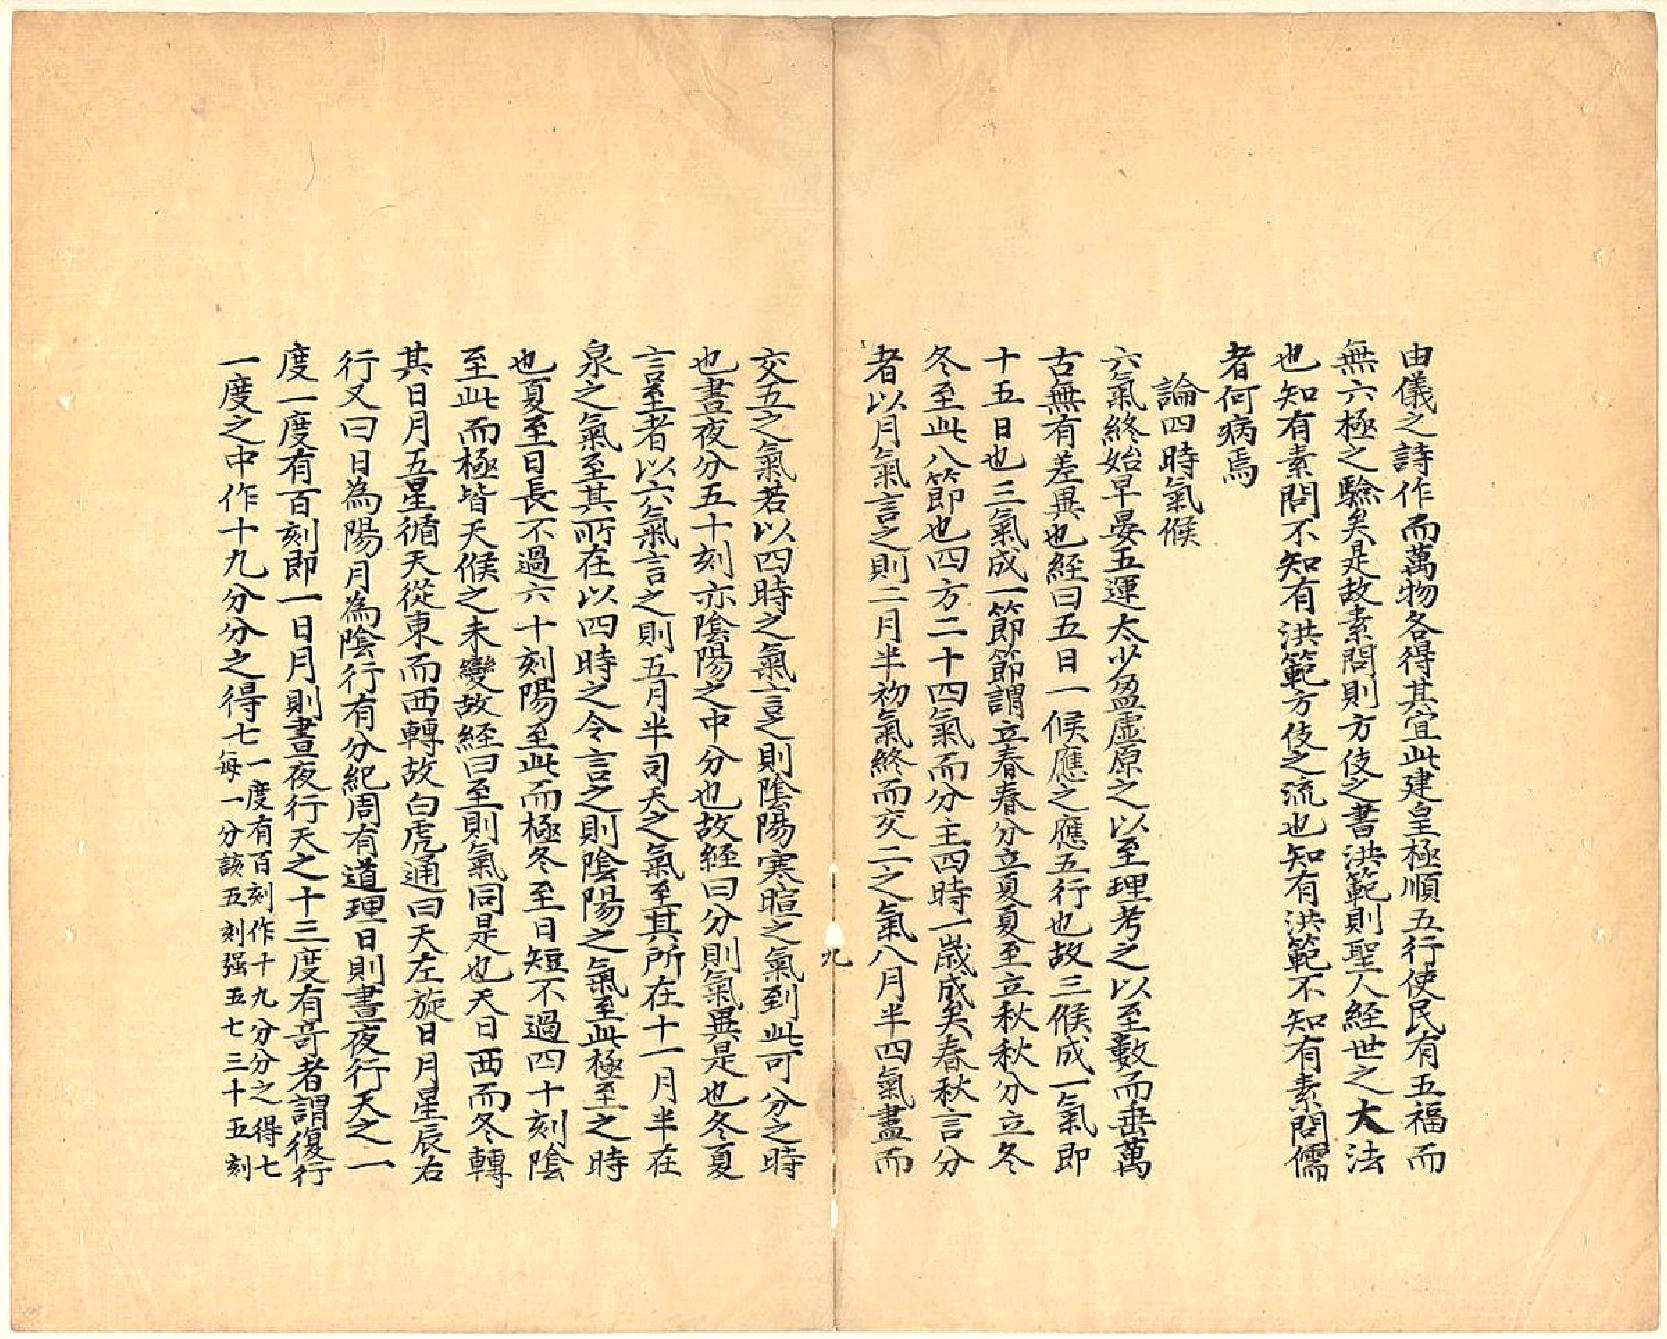 由儀之詩作而萬物各得其宜此建皇極順五行使民有五福而
無六極之驗矣是故素問則方伎之書洪範則聖人經世之大法
也知有素問不知有洪範方伎之流也知有洪範不知有素問儒
者何病焉
論四時氣候
六氣終始早晏五運太少盈虛原之以至理考之以至數而垂萬
古無有差異也經曰五日一候應之應五行也故三候成一氣即
十五日也三氣成一節節謂立春春分立夏夏至立秋秋分立冬
冬至此八節也四方二十四氣而分主四時一歲成矣春秋言分
者以月氣言之則二月半初氣終而交二之氣八月半四氣盡而
九
交五之氣若以四時之氣言之則陰陽寒暄之氣到此可分之時
也晝夜分五十刻亦陰陽之中分也故經曰分則氣異是也冬夏
言至者以六氣言之則五月半司天之氣至其所在十一月半在
泉之氣至其所在以四時之令言之則陰陽之氣至此極至之時
也夏至日長不過六十刻陽至此而極冬至日短不過四十刻陰
至此而極皆天候之未變故經曰至則氣同是也天日西而冬轉
其日月五星循天從東而西轉故白虎通曰天左旋日月星辰右
行又曰日為陽月為陰行有分紀周有道理日則晝夜行天之一
度一度有百刻即一日月則晝夜行天之十三度有奇者謂復行
一度之中作十九分分之得七一度有百刻作十九分分之得七
每一分該五刻强五七三十五刻